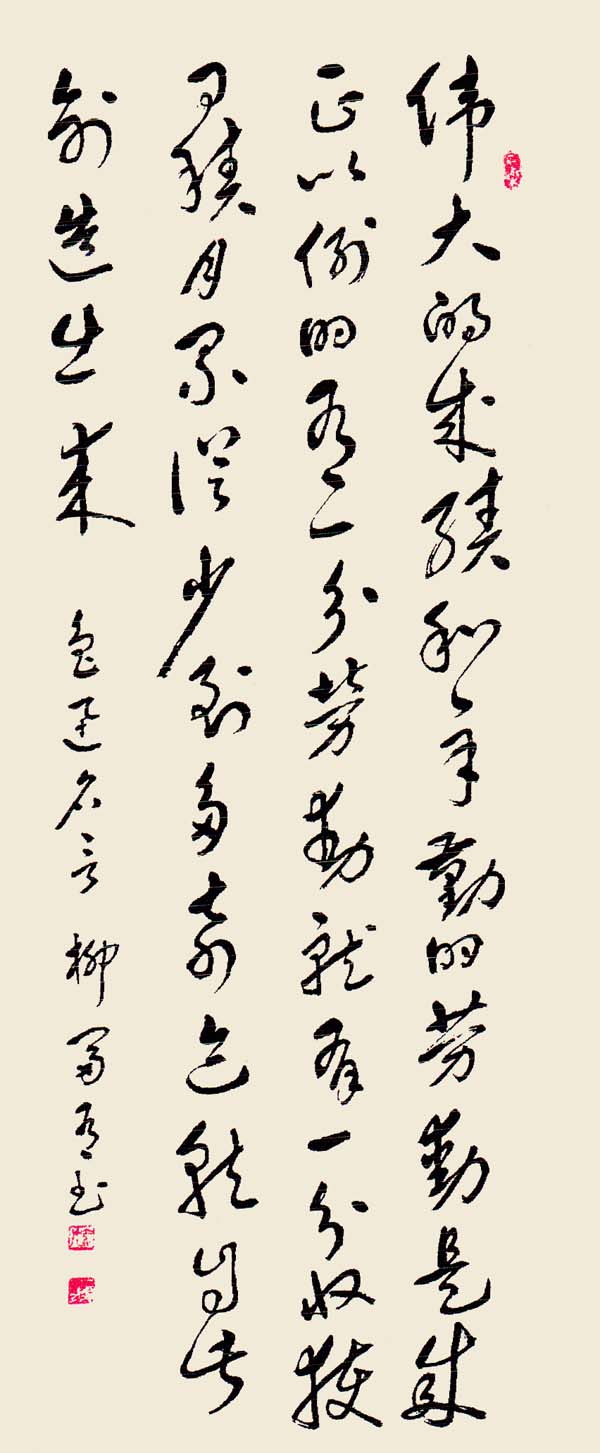 伟大的成绩和辛勤的劳动是成
正比例的有一分劳动就有一分收获
日积月累从少到多奇迹就可以
创造出来 鲁迅名言 柳富有书